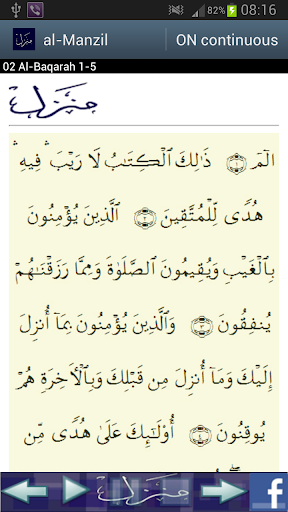 08:16
al-Manzil
ON continuous
02 Al-Baqarah 1-5
منزل
الٓمٓ ۝١ ذَٰلِكَ ٱلْكِتَٰبُ لَا رَيْبَ ۛ فِيهِ ۛ
هُدًى لِّلْمُتَّقِينَ ۝٢ ٱلَّذِينَ يُؤْمِنُونَ
بِٱلْغَيْبِ وَيُقِيمُونَ ٱلصَّلَوٰةَ وَمِمَّا رَزَقْنَٰهُمْ
يُنفِقُونَ ۝٣ وَٱلَّذِينَ يُؤْمِنُونَ بِمَآ أُنزِلَ
إِلَيْكَ وَمَآ أُنزِلَ مِن قَبْلِكَ وَبِٱلْأَخِرَةِ هُمْ
يُوقِنُونَ ۝٤ أُو۟لَٰٓئِكَ عَلَىٰ هُدًى مِّن
منزل
f